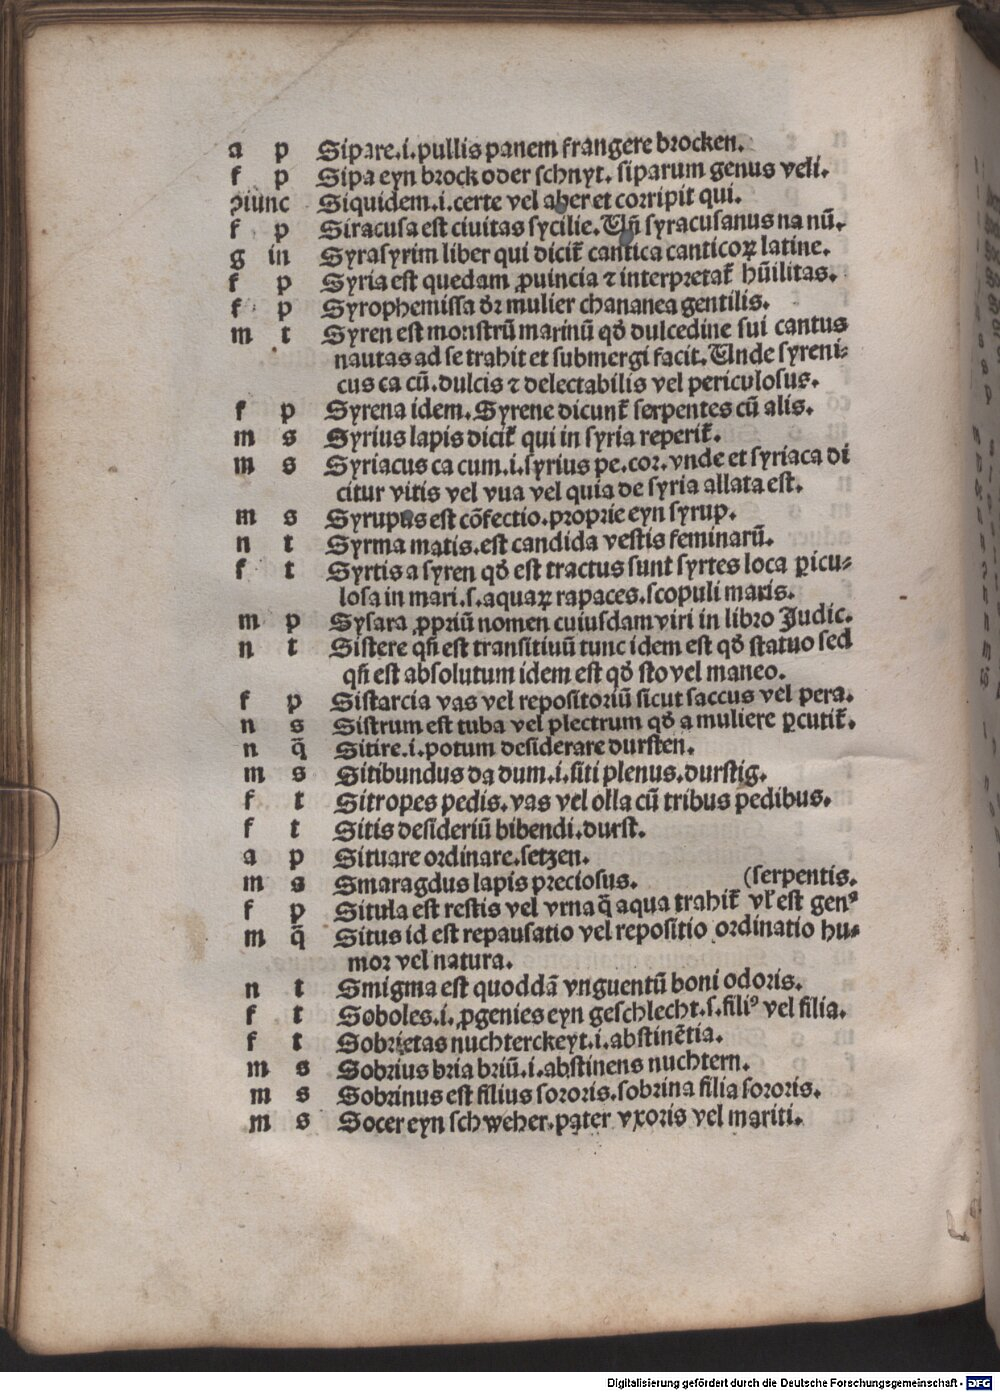 a p Sipare.i.pullis panem frangere brocken.
f p Sipa eyn brock oder schnyt. siparum genus veli.
ꝯiunc Siquidem.i.certe vel aber et corripit qui.
f p Siracusa est civitas sycilie. Uñ syracusanus na nū.
g in Syrasyrim liber qui dicit̄ cantica canticoꝝ latine.
f p Syria est quedam ꝓuincia ⁊ interpretat̄ hūilitas.
f p Syrophemissa dr̄ mulier chananea gentilis.
m t Syren est monstrū marinū qd̄ dulcedine sui cantus
nautas ad se trahit et submergi facit. Unde syreni⸗
cus ca cū. dulcis ⁊ delectabilis vel periculosus.
f p Syrena idem. Syrene dicunt̄ serpentes cū alis.
m s Syrius lapis dicit̄ qui in syria reperit̄.
m s Syriacus ca cum.i.syrius pe.cor.vnde et syriaca di
citur vitis vel vua vel quia de syria allata est.
m s Syrupus est cōfectio.proprie eyn syrup.
n t Syrma matis.est candida vestis feminarū.
f t Syrtis a syren qd̄ est tractus sunt syrtes loca ꝑicu⸗
losa in mari.s.aquaꝝ rapaces.scopuli maris.
m p Sysara ꝓpriū nomen cuiusdam viri in libro Judic.
n t Sistere qn̄ est transitiuū tunc idem est qd̄ statuo sed
qn̄ est absolutum idem est qd̄ sto vel maneo.
f p Sistarcia vas vel repositoriū sicut saccus vel pera.
n s Sistrum est tuba vel plectrum qd̄ a muliere ꝑcutit̄.
n q̄ Sitire.i.potum desiderare dursten.
m s Sitibundus da dum.i.siti plenus.durstig.
f t Sitropes pedis.vas vel olla cū tribus pedibus.
f t Sitis desideriū bibendi.durst.
a p Situare ordinare.setzen.
m s Smaragdus lapis preciosus. (serpentis.
f p Situla est restis vel vrna q̄ aqua trahit̄ vl̄ est genꝰ
m q̄ Situs id est repausatio vel repositio ordinatio hu⸗
mor vel natura.
n t Smigma est quoddā vnguentū boni odoris.
f t Soboles.i.ꝓgenies eyn geschlecht.s.filiꝰ vel filia.
f t Sobrietas nuchterckeyt.i.abstinētia.
m s Sobrius bria briū.i.abstinens nuchtern.
m s Sobrinus est filius sororis.sobrina filia sororis.
m s Socer eyn schweher.pater vxoris vel mariti.
Digitalisierung gefördert durch die Deutsche Forschungsgemeinschaft - DFG